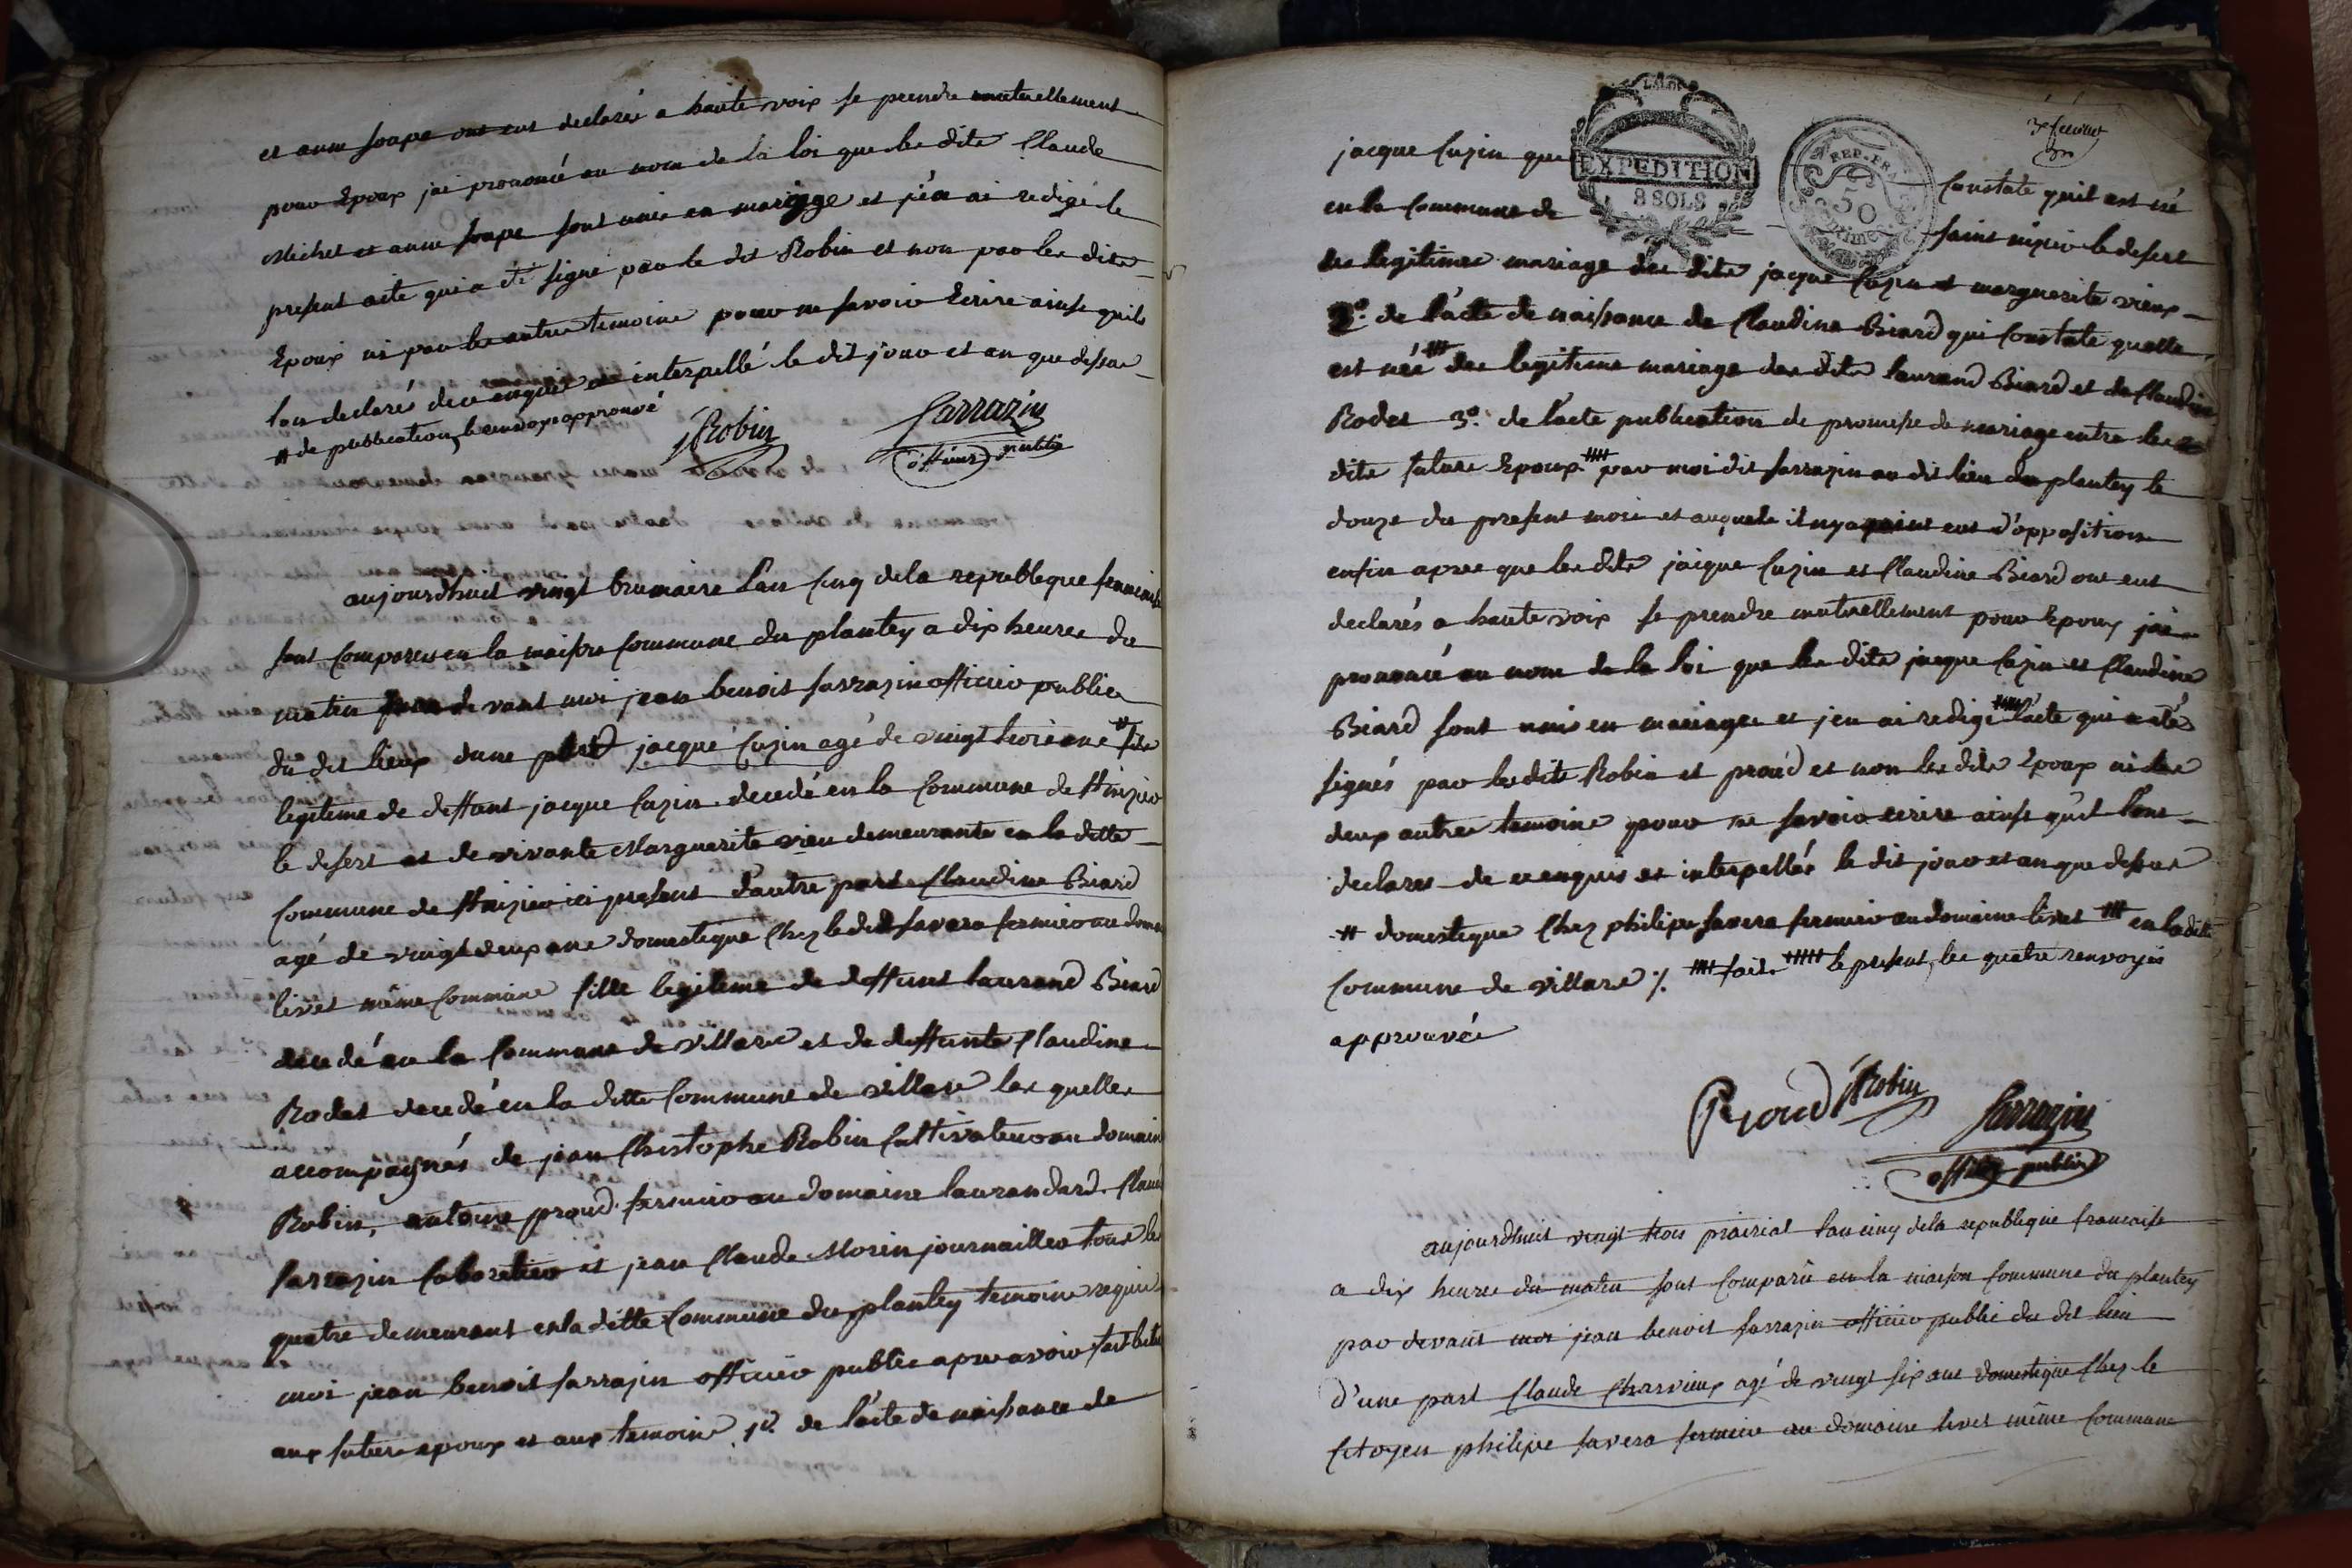 et anne soupe ont eut declarés a haute voix se prendre mutuellement
pour Epoux jai prononcé au nom de la loi que les dits Claude
Michel et anne soupe sont unis en mariage et j'en ai redigé le
present acte qui a été signé par le dit Robin et non par les dits
Epoux ni par les autres temoins pour ne savoir Ecrire ainsi quils
lon declarés de ce enquis et interpellé le dit jour et an que dessus
# de publication, le renvoy approuvé
JRobin
Sarrazin
officier public
aujourdhuit vingt brumaire lan cinq de la republeque francaise
sont comparus en la maison commune du plantey a dix heures du
matin par devant moi jean benoit sarrazin officier public
du dit lieux dune part jacque Cuzin agé de vingt trois ans # fils
legitime de deffunt jacque Cuzin decedé en la commune de St nizier
le desert et de vivante Marguerite vieu demeurante en la ditte
commune de St nizier ici present d'autre part Claudine Biard
agé de vingt deux ans domestique chez le dit favera fermier au domaine
livet même commune fille legitime de deffunt laurand Biard
decedé en la commune de villars et de deffunte Claudine
Rodet decedé en la ditte commune de villars les quelles
accompagnés de jean Christophe Robin Cultivateur au domaine
Robin, antoine proud fermier au domaine laurandard. Claude
sarrazin laboureur et jean Claude Morin journaillier tous les
quatre demeurant en la ditte commune du plantey temoins requis
moi jean benoit sarrazin officier public apres avoir fait lecture
aux futurs epoux et aux temoins 1º. de l'acte de naissance de
jacque Cuzin que
EXPEDITION
8 SOLS
REP. FRA
50
Constate quil est né
en la commune de
saint nizier le desert
du legitime mariage des dits jacque Cuzin et marguerite vieux
2º. de l'acte de naissance de Claudine Biard qui constate quelle
est née ### du legitime mariage des dits laurand Biard et de Claudine
Rodet 3º. de l'acte publication de promesse de mariage entre les
dits futurs Epoux #### par moi dit sarrazin au dit lieu du plantey le
douze du present mois et auquels il ny a point eut d'opposition
enfin apres que les dits jacque Cuzin et Claudine Biard ont eut
declarés a haute voix se prendre mutuellement pour Epoux jai
prononcé au nom de la loi que les dits jacque Cuzin et Claudine
Biard sont unis en mariage et jen ai redigé ##### l'acte qui a été
signés par les dits Robin et proud et non les dits Epoux ni les
deux autres temoins pour ne savoir ecrire ainsi quil lont
declarés de ce enquis et interpellés le dit jour et an que dessus
# domestique Chez philipe favera fermier au domaine livet ### en la ditte
commune de villars ٪ #### faite ##### le present, les quatre renvoyis
approuvés
Proud
JRobin
Sarrazin
officier public
aujourdhuit vingt trois prairial lan cinq dela republeque francaise
a dix heures du matin sont comparu en la maison commune du plantey
par devant moi jean benoit sarrazin officier public du dit lieu
d'une part Claude Charvieux agé de vingt six ans domestique chez le
Citoyen philipe favera fermier au domaine livet même commune